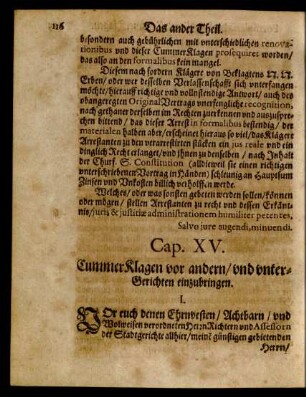 116 Das ander Theil.
besondern auch gebührlichen mit unterschiedliches renova-
tionibus und dieser CummerKlagen prosequiret worden/
das also an den formalibus kein mangel.
Diesem nach fordern Klägere von Beklagtens N. N.
Erben/ oder wer desselben Verlassenschafft sich unterfangen
möchte/ hierauff richtige und vollständige Antwort/ auch des
obangeregten Original Vertrags unverlengliche recognition,
nach gethaner derselben im Rechten zuerkennen und auszuspre-
chen bittend/ das dieser Arrest in formalibus bestendig/ der
materialen halben aber/ erscheinet hieraus so viel/ das Klägere
Arrestanten zu den verarrestirten stücken ein jus reale und ein
dinglich Recht erlanget/ und ihnen zu denselben/ nach Inhalt
der Churf. S. Constitution (alldieweil sie einen richtigen
unterschriebenen Vortrag in Händen) schleunig an Hauptsum
Zinsen und Unkosten billich verholffen werde.
Welches/ oder was sonsten gebeten werden sollen/ können
oder mögen/ stellen Arrestanten zu recht und dessen Erkänt-
nis/ juris & justitiæ administrationem humiliter petentes,
Salvo jure augendi, minuendi.
Cap. XV.
CummerKlagen vor andern/ und unter-
Gerichten einzubringen.
I.
VOr euch denen Ehrnvesten/ Achtbarn/ und
Wolweisen verordneten Herrn Richtern und Assessorn
der Stadtgerichte allhier/ meine günstigen gebietenden
Herrn/